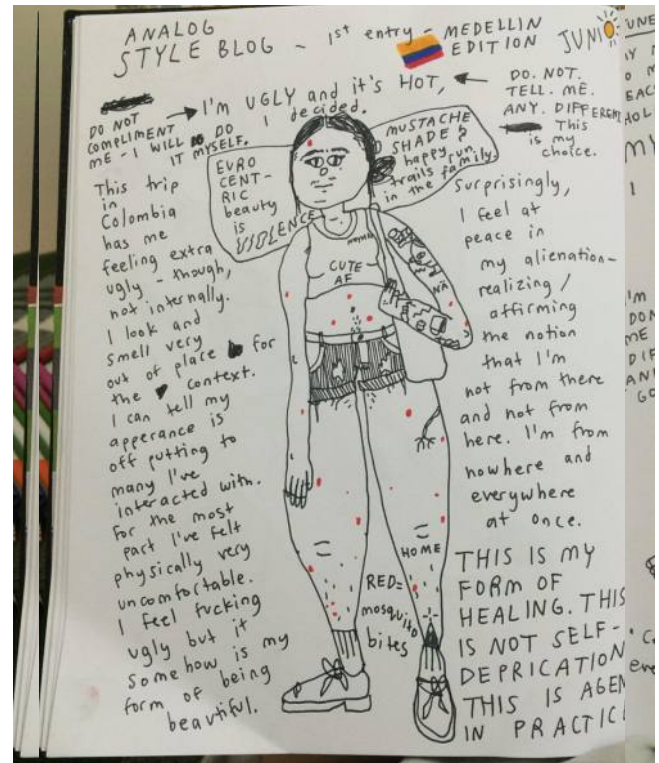 ANALOG
STYLE BLOG ~ 1st entry - MEDELLIN
EDITION JUNIO
I'M UGLY and it's HOT,
I decided.
DO NOT
COMPLIMENT
ME - I WILL DO
IT MYSELF.
DO. NOT.
TELL. ME.
ANY. DIFFERENT
This
is my
choice.
EURO
CENT-
RIC
beauty
is
VIOLENCE
MUSTACHE
SHADE &
happy
trails run
in the family.
This trip
in
Colombia
has me
feeling extra
ugly - though,
not internally.
I look and
smell very
out of place for
the context.
I can tell my
apperance is
off putting to
many I've
interacted with.
For the most
part I've felt
physically very
uncomfortable.
I feel fucking
ugly but it
somehow is my
form of being
beautiful.
CUTE
AF
NA
HOME
RED=
mosquito
bites
Surprisingly,
I feel at
peace in
my alienation-
realizing /
affirming
the notion
that I'm
not from there
and not from
here. I'm from
nowhere and
everywhere
at once.
THIS IS MY
FORM OF
HEALING. THIS
IS NOT SELF-
DEPRICATION
THIS IS AGEN
IN PRACTIC